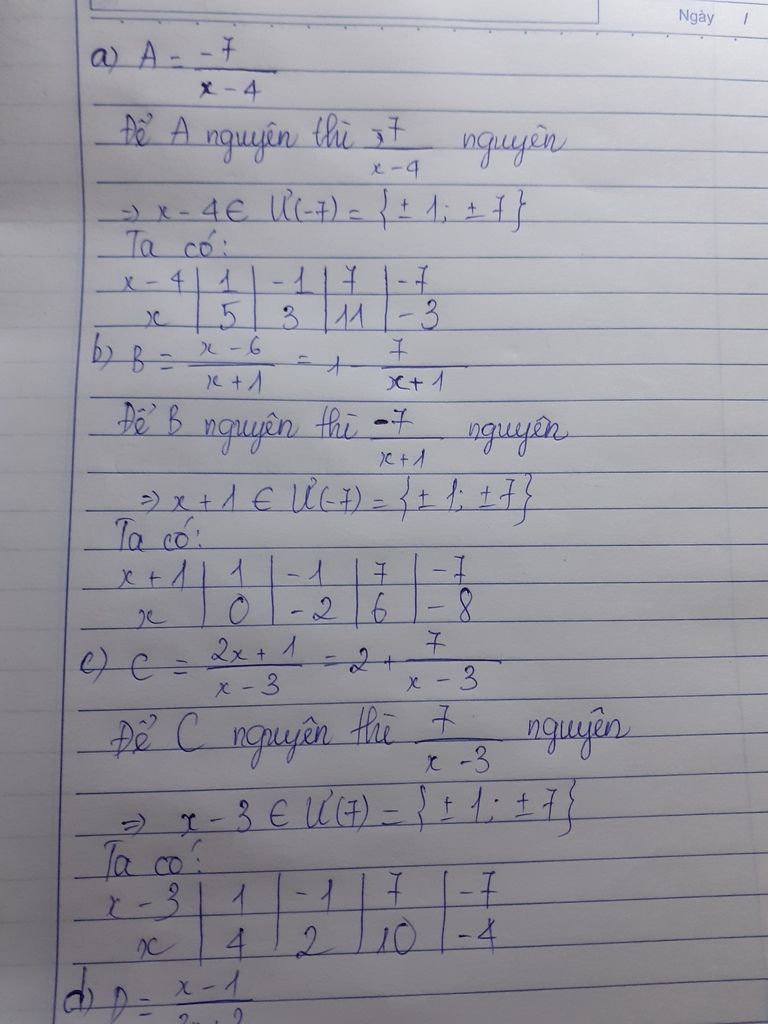 Ngày /
a) A = -7/(x-4)
Để A nguyên thì -7/(x-4) nguyên
⇒ x - 4 ∈ Ư(-7) = {± 1; ± 7}
Ta có:
x - 4 | 1 | -1 | 7 | -7
x | 5 | 3 | 11 | -3
b) B = (x-6)/(x+1) = 1 - 7/(x+1)
Để B nguyên thì -7/(x+1) nguyên
⇒ x + 1 ∈ Ư(-7) = {± 1; ±7}
Ta có:
x + 1 | 1 | -1 | 7 | -7
x | 0 | -2 | 6 | -8
c) C = (2x+1)/(x-3) = 2 + 7/(x-3)
Để C nguyên thì 7/(x-3) nguyên
⇒ x - 3 ∈ Ư(7) = {± 1; ± 7}
Ta có:
x - 3 | 1 | -1 | 7 | -7
x | 4 | 2 | 10 | -4
d) D = x - 1